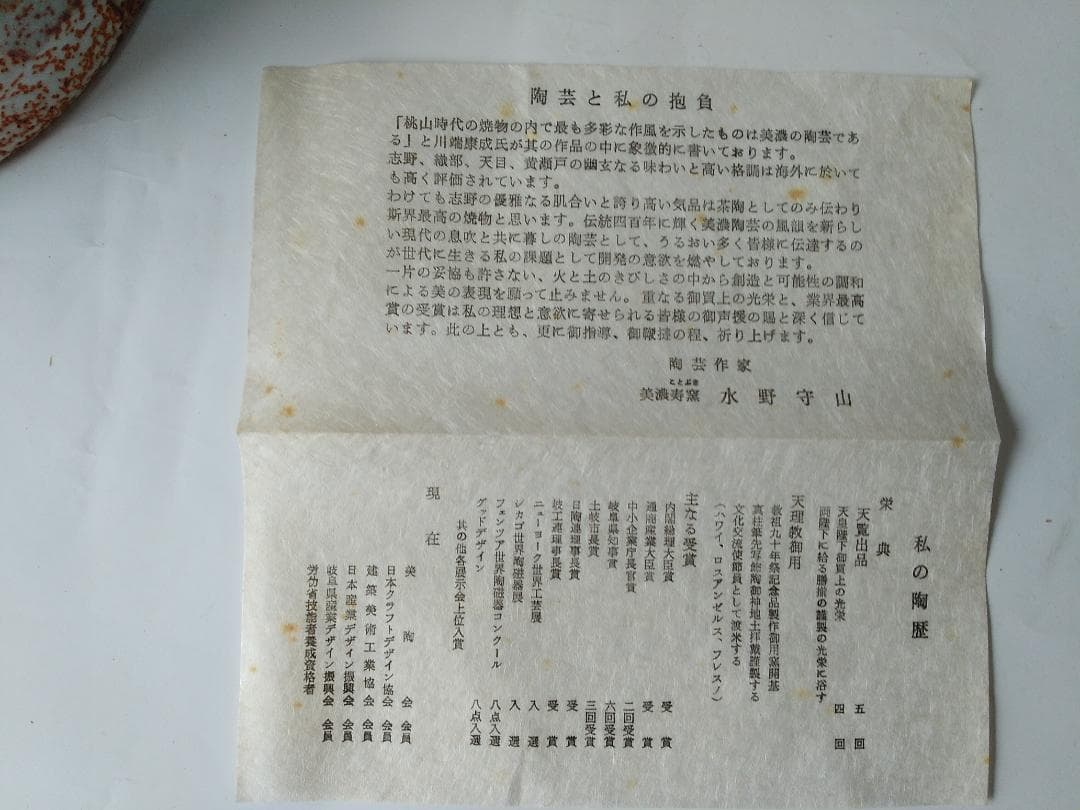 陶芸と私の抱負
「桃山時代の焼物の内で最も多彩な作風を示したものは美濃の陶芸であ
る」と川端康成氏が其の作品の中に象徴的に書いております。
志野、織部、天目、黄瀬戸の幽玄なる味わいと高い格調は海外に於いて
も高く評価されています。
わけても志野の優雅なる肌合いと誇り高い気品は茶陶としてのみ伝わり
斯界最高の焼物と思います。伝統四百年に輝く美濃陶芸の風韻を新らし
い現代の息吹と共に暮しの陶芸として、うるおい多く皆様に伝達するの
が世代に生きる私の課題として開発の意欲を燃やしております。
一片の妥協も許さない、火と土のきびしさの中から創造と可能性の調和
による美の表現を願って止みません。重なる御買上の光栄と、業界最高
賞の受賞は私の理想と意欲に寄せられる皆様の御声援の賜と深く信じて
います。此の上とも、更に御指導、御鞭撻の程、祈り上げます。
陶芸作家
ことぶき
美濃寿窯 水野守山
私の陶歴
栄典
天覧出品 五回
天皇陛下御買上の光栄 四回
両陛下に給る膳揃の謹製の光栄に浴す
天理教御用
教祖九十年祭記念品製作御用窯開基
真柱筆先写鉋陶御神地土拝戴謹製する
文化交流使節員として渡米する
(ハワイ、ロスアンゼルス、フレスノ)
主なる受賞
内閣総理大臣賞 受賞
通商産業大臣賞 受賞
中小企業庁長官賞 二回受賞
岐阜県知事賞 六回受賞
土岐市長賞 三回受賞
日陶連理事長賞 受賞
岐工連理事長賞 受賞
ニューヨーク世界工芸展 入選
シカゴ世界陶磁器展 入選
フェンツア世界陶磁器コンクール 八点入選
グッドデザイン 八点入選
其の他各展示会上位入賞
現在
美陶会 会員
日本クラフトデザイン協会 会員
建築美術工業協会 会員
日本産業デザイン振興会 会員
岐阜県産業デザイン振興会 会員
労働省技能者養成資格者